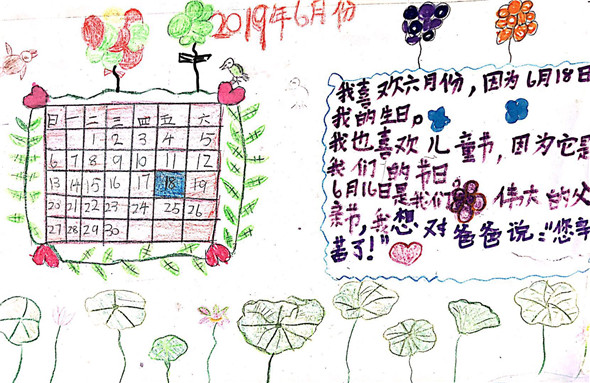 2019年6月份
日 一 二 三 四 五 六
1 2 3 4 5
6 7 8 9 10 11 12
13 14 15 16 17 18 19
20 21 22 23 24 25 26
27 28 29 30
我喜欢六月份，因为6月18日
我的生日。
我也喜欢儿童节，因为它是
我们的节日
6月16日是我们伟大的父
亲节，我想对爸爸说："您辛
苦了！"